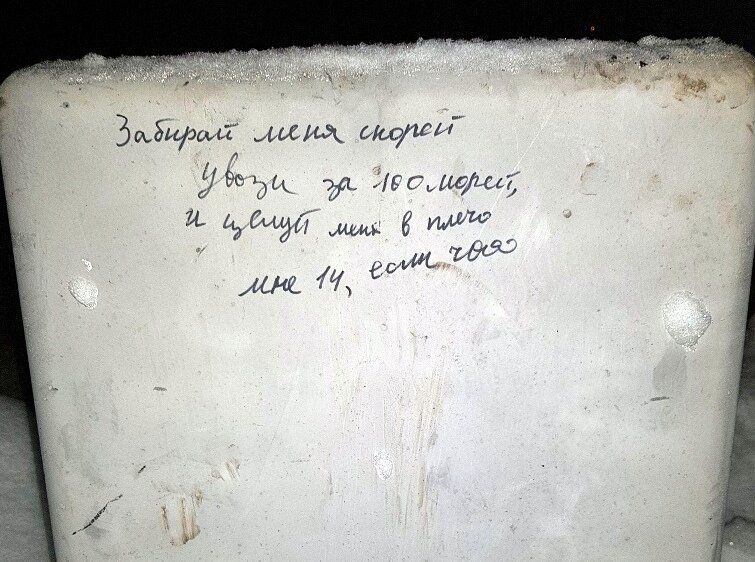 Забирай меня скорей
Увози за 100 морей,
и целуй меня в плечо
мне 14, если чо